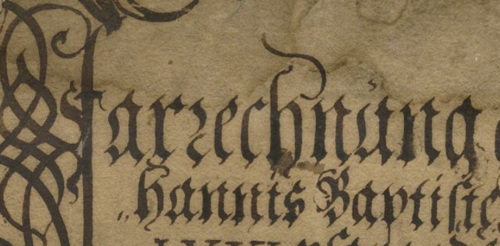 Jarrechnŭng
hannis Baptiste